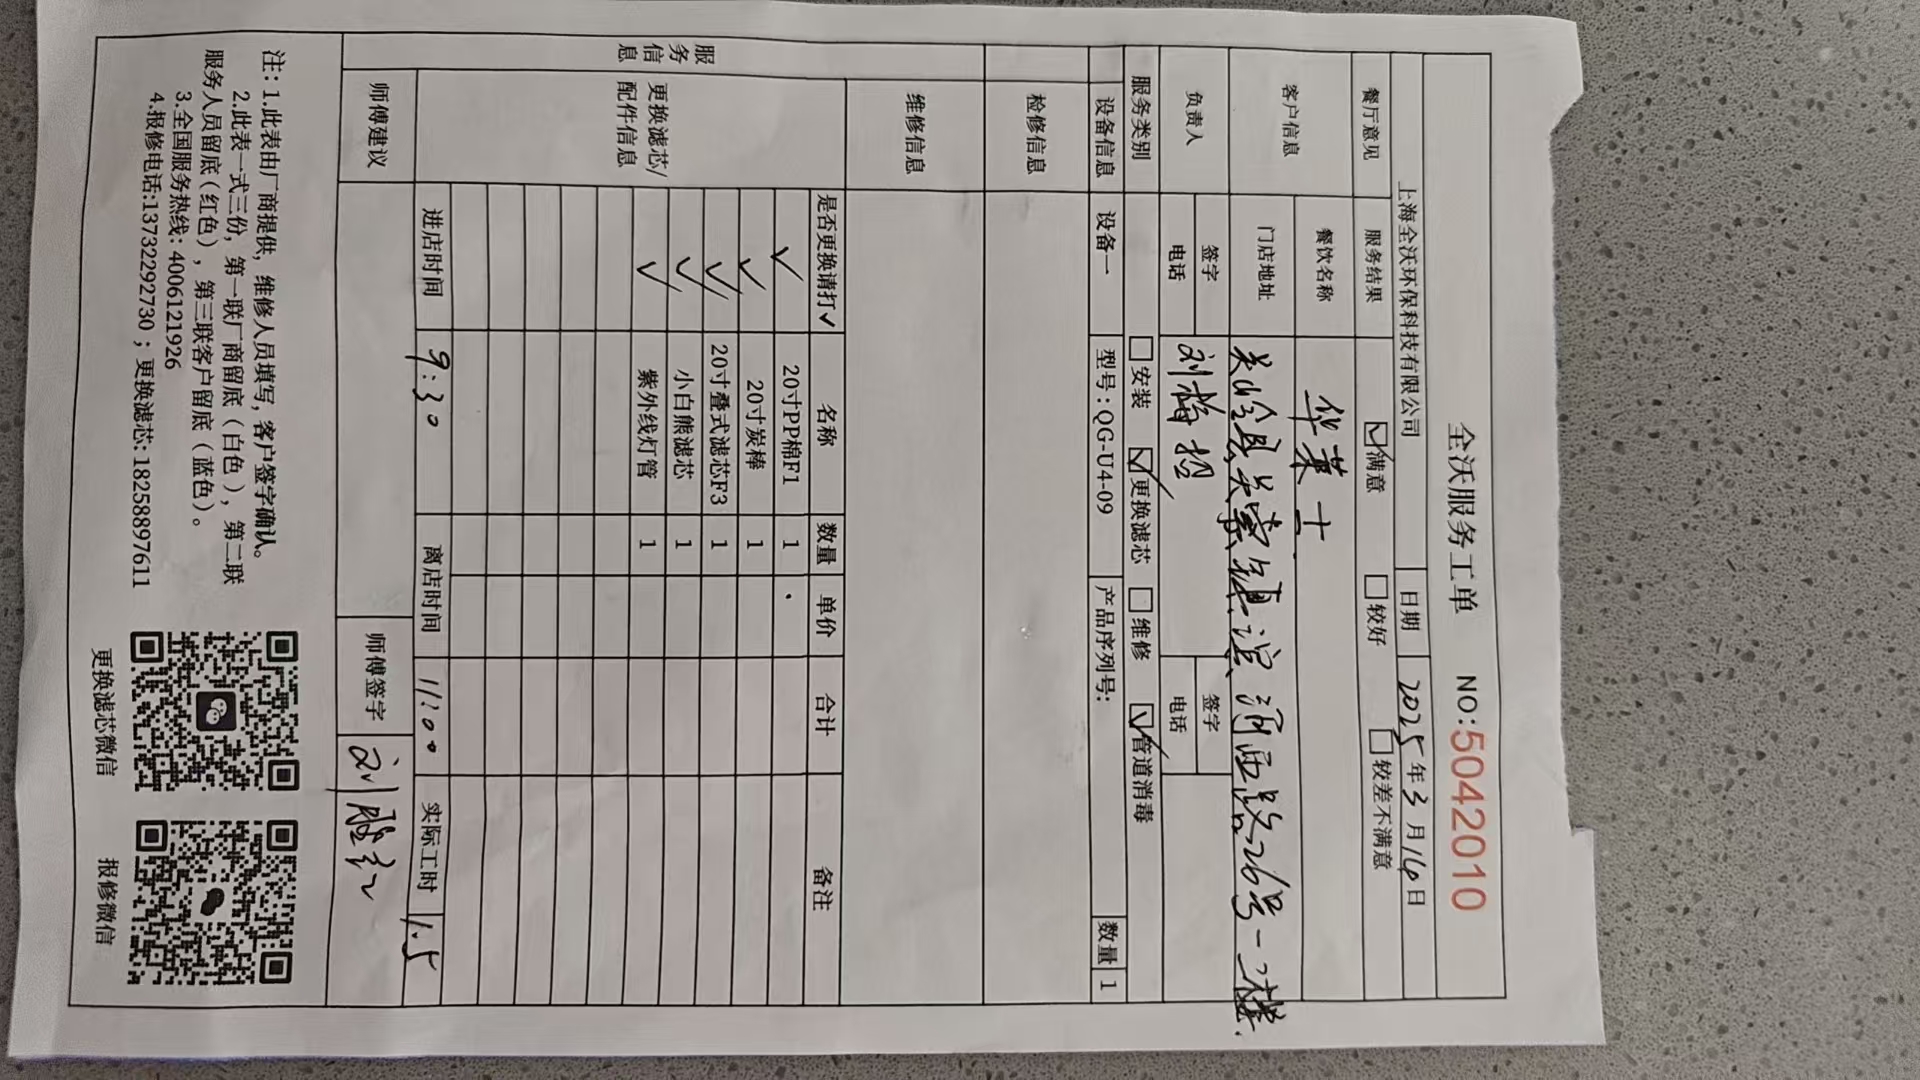 全沃服务工单 NO:5042010
上海全沃环保科技有限公司 日期 2025年3月14日
餐厅意见 服务结果 满意 较好 较差不满意
客户信息 餐饮名称 华莱士
门店地址 关岭县关索镇滨河西路26号一二楼.
负责人 签字 刘梅 签字
电话 电话
服务类别 安装 更换滤芯 维修 管道消毒
设备信息 设备一 型号:QG-U4-09 产品序列号: 数量 1
检修信息
维修信息
服务信息
更换滤芯/配件信息
是否更换请打✓ 名称 数量 单价 合计 备注
✓ 20寸PP棉F1 1
✓ 20寸炭棒 1
✓ 20寸叠式滤芯F3 1
✓ 小白熊滤芯 1
✓ 紫外线灯管 1
进店时间 9:30 离店时间 11:00 实际工时 1.5
师傅建议 师傅签字 刘
注: 1.此表由厂商提供, 维修人员填写, 客户签字确认。
2.此表一式三份, 第一联厂商留底(白色), 第二联
服务人员留底(红色), 第三联客户留底(蓝色)。
3.全国服务热线: 4006121926
4.报修电话:13732292730; 更换滤芯: 18258897611
更换滤芯微信 报修微信